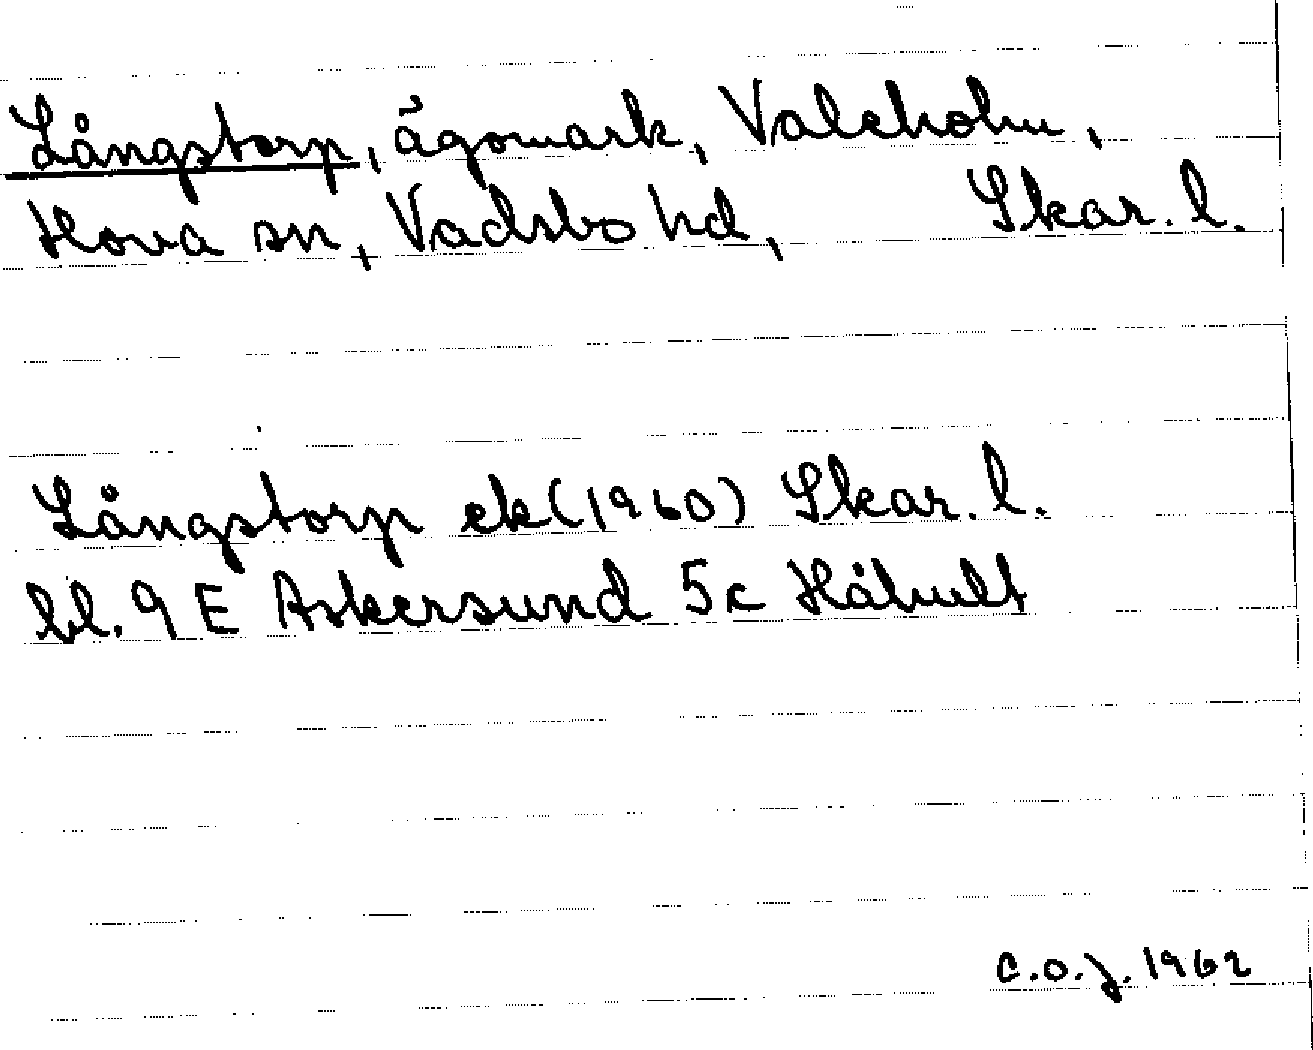 Långstorp, ägomark, Valekohu,
Hova sn, Vadsbo hd, Skar. l.
Långstorp ek (1960) Skar. l.
bl. 9 E Askersund 5c Håhult
C.O.J. 1962